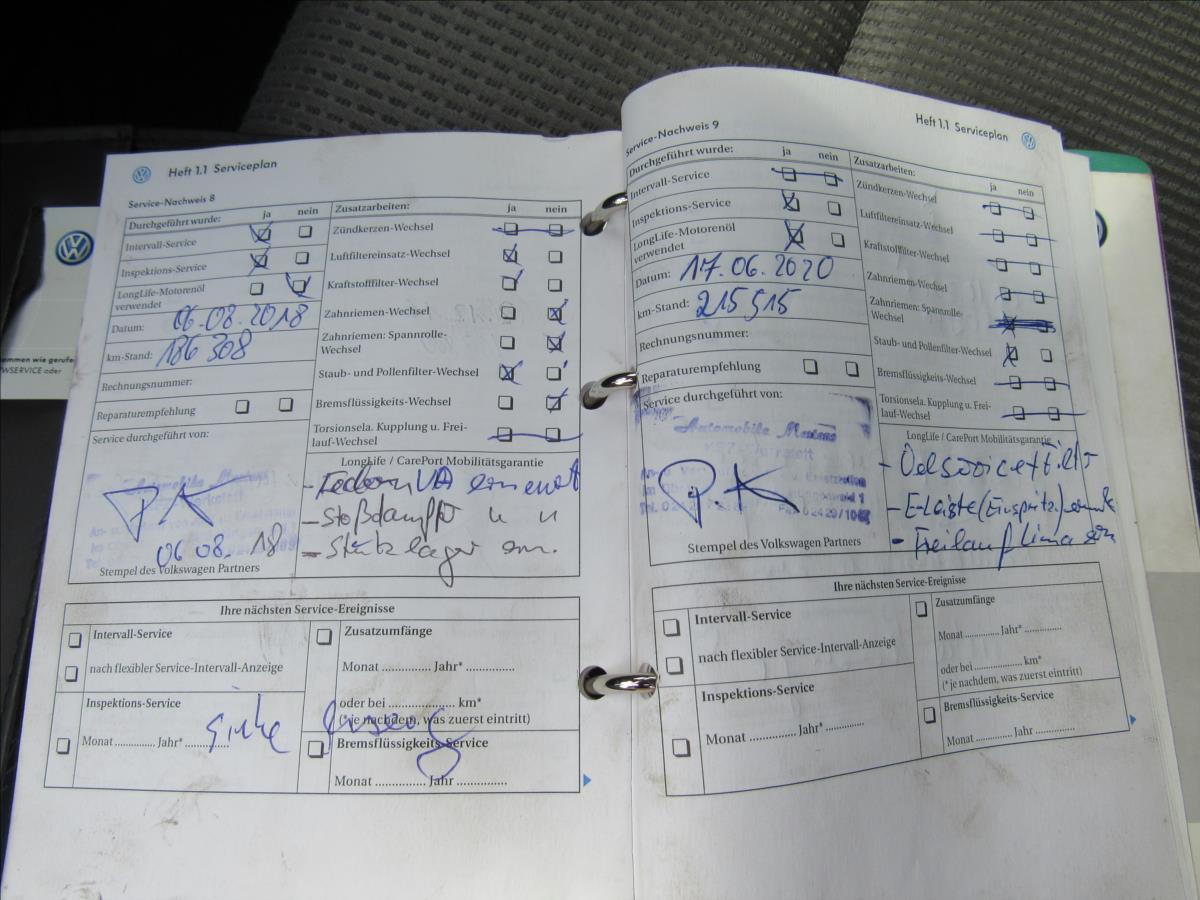 Heft 1.1 Serviceplan
Service-Nachweis 8
Durchgeführt wurde: ja nein
Intervall-Service
Inspektions-Service
LongLife-Motorenöl
verwendet
Datum: 06.08.2018
km-Stand: 186 308
Rechnungsnummer:
Reparaturempfehlung
Service durchgeführt von:
06 08. 18
Stempel des Volkswagen Partners
Zusatzarbeiten: ja nein
Zündkerzen-Wechsel
Luftfiltereinsatz-Wechsel
Kraftstofffilter-Wechsel
Zahnriemen-Wechsel
Zahnriemen: Spannrolle-
Wechsel
Staub- und Pollenfilter-Wechsel
Bremsflüssigkeits-Wechsel
Torsionsela. Kupplung u. Frei-
lauf-Wechsel
LongLife / CarePort Mobilitätsgarantie
- Federn VA erneuert
- Stoßdämpfer
- Stützlager ern.
Ihre nächsten Service-Ereignisse
Intervall-Service
nach flexibler Service-Intervall-Anzeige
Inspektions-Service
Monat .............. Jahr* ..............
siehe
Zusatzumfänge
Monat .............. Jahr* ..............
oder bei .................... km*
(* je nachdem, was zuerst eintritt)
Bremsflüssigkeits-Service
Monat .............. Jahr ..............
Heft 1.1 Serviceplan
Service-Nachweis 9
Durchgeführt wurde: ja nein
Intervall-Service
Inspektions-Service
LongLife-Motorenöl
verwendet
Datum: 17.06.2020
km-Stand: 215515
Rechnungsnummer:
Reparaturempfehlung
Service durchgeführt von:
Automobile Mertens
KFZ-Werkstatt
Stempel des Volkswagen Partners
Zusatzarbeiten: ja nein
Zündkerzen-Wechsel
Luftfiltereinsatz-Wechsel
Kraftstofffilter-Wechsel
Zahnriemen-Wechsel
Zahnriemen: Spannrolle-
Wechsel
Staub- und Pollenfilter-Wechsel
Bremsflüssigkeits-Wechsel
Torsionsela. Kupplung u. Frei-
lauf-Wechsel
LongLife / CarePort Mobilitätsgarantie
- Oelservice + Filter
- E-Leiste (Einspritz.)
- Freilauf Lima ern
Ihre nächsten Service-Ereignisse
Intervall-Service
nach flexibler Service-Intervall-Anzeige
Inspektions-Service
Monat .............. Jahr* ..............
Zusatzumfänge
Monat .............. Jahr* ..............
oder bei .................... km*
(* je nachdem, was zuerst eintritt)
Bremsflüssigkeits-Service
Monat .............. Jahr* ..............